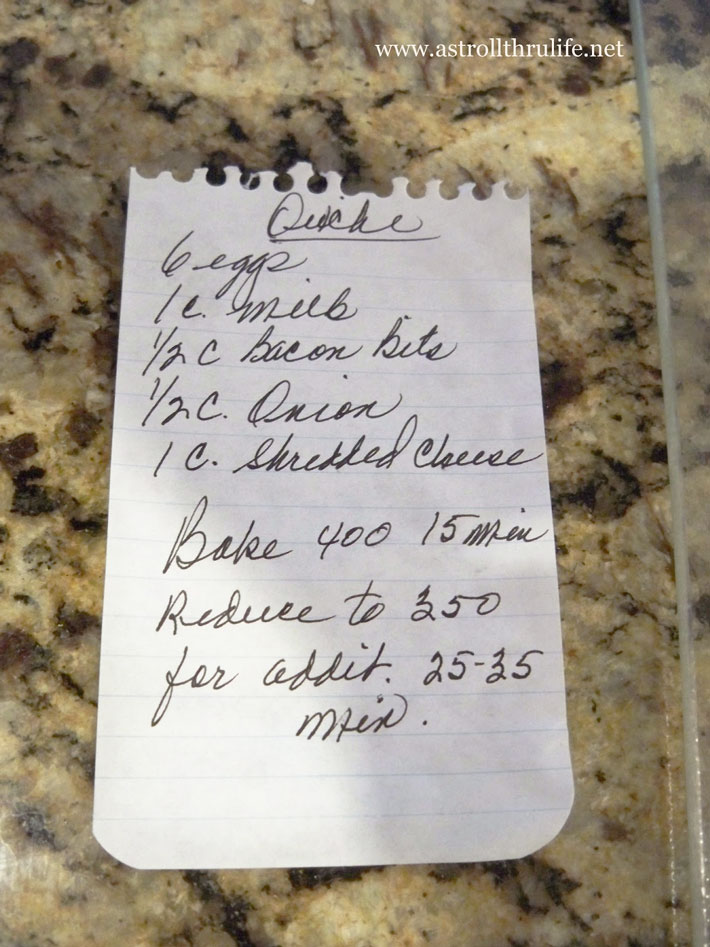 www.astrollthrulife.net
Quiche
6 eggs
1 c. milk
1/2 c Bacon Bits
1/2 c. Onion
1 c. Shredded Cheese
Bake 400 15 min
Reduce to 350
for addit. 25-35
min.